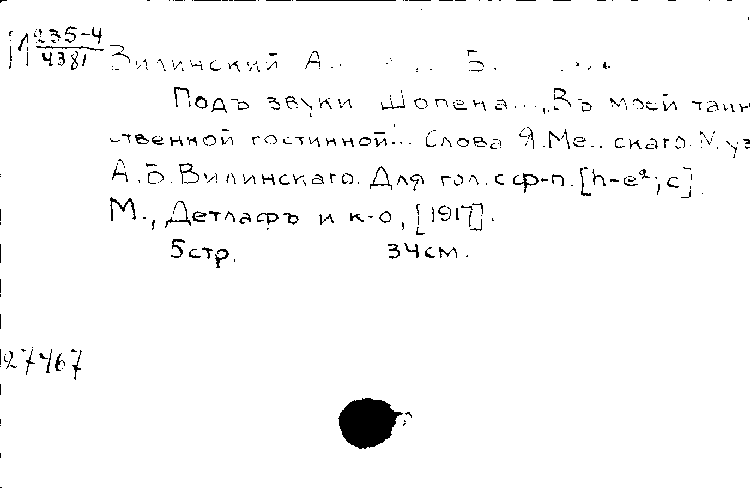 235-4
4381
Вилинский А. Б.
Подъ звуки Шопена..., Въ моей таин
ственной гостинной... Слова Я. Муз
А.Б. Вилинскаго. Для гол. с ф-п. [h-e²; c]
М., Детлафъ и к-о, [1917].
5 стр. 34 см.
27467